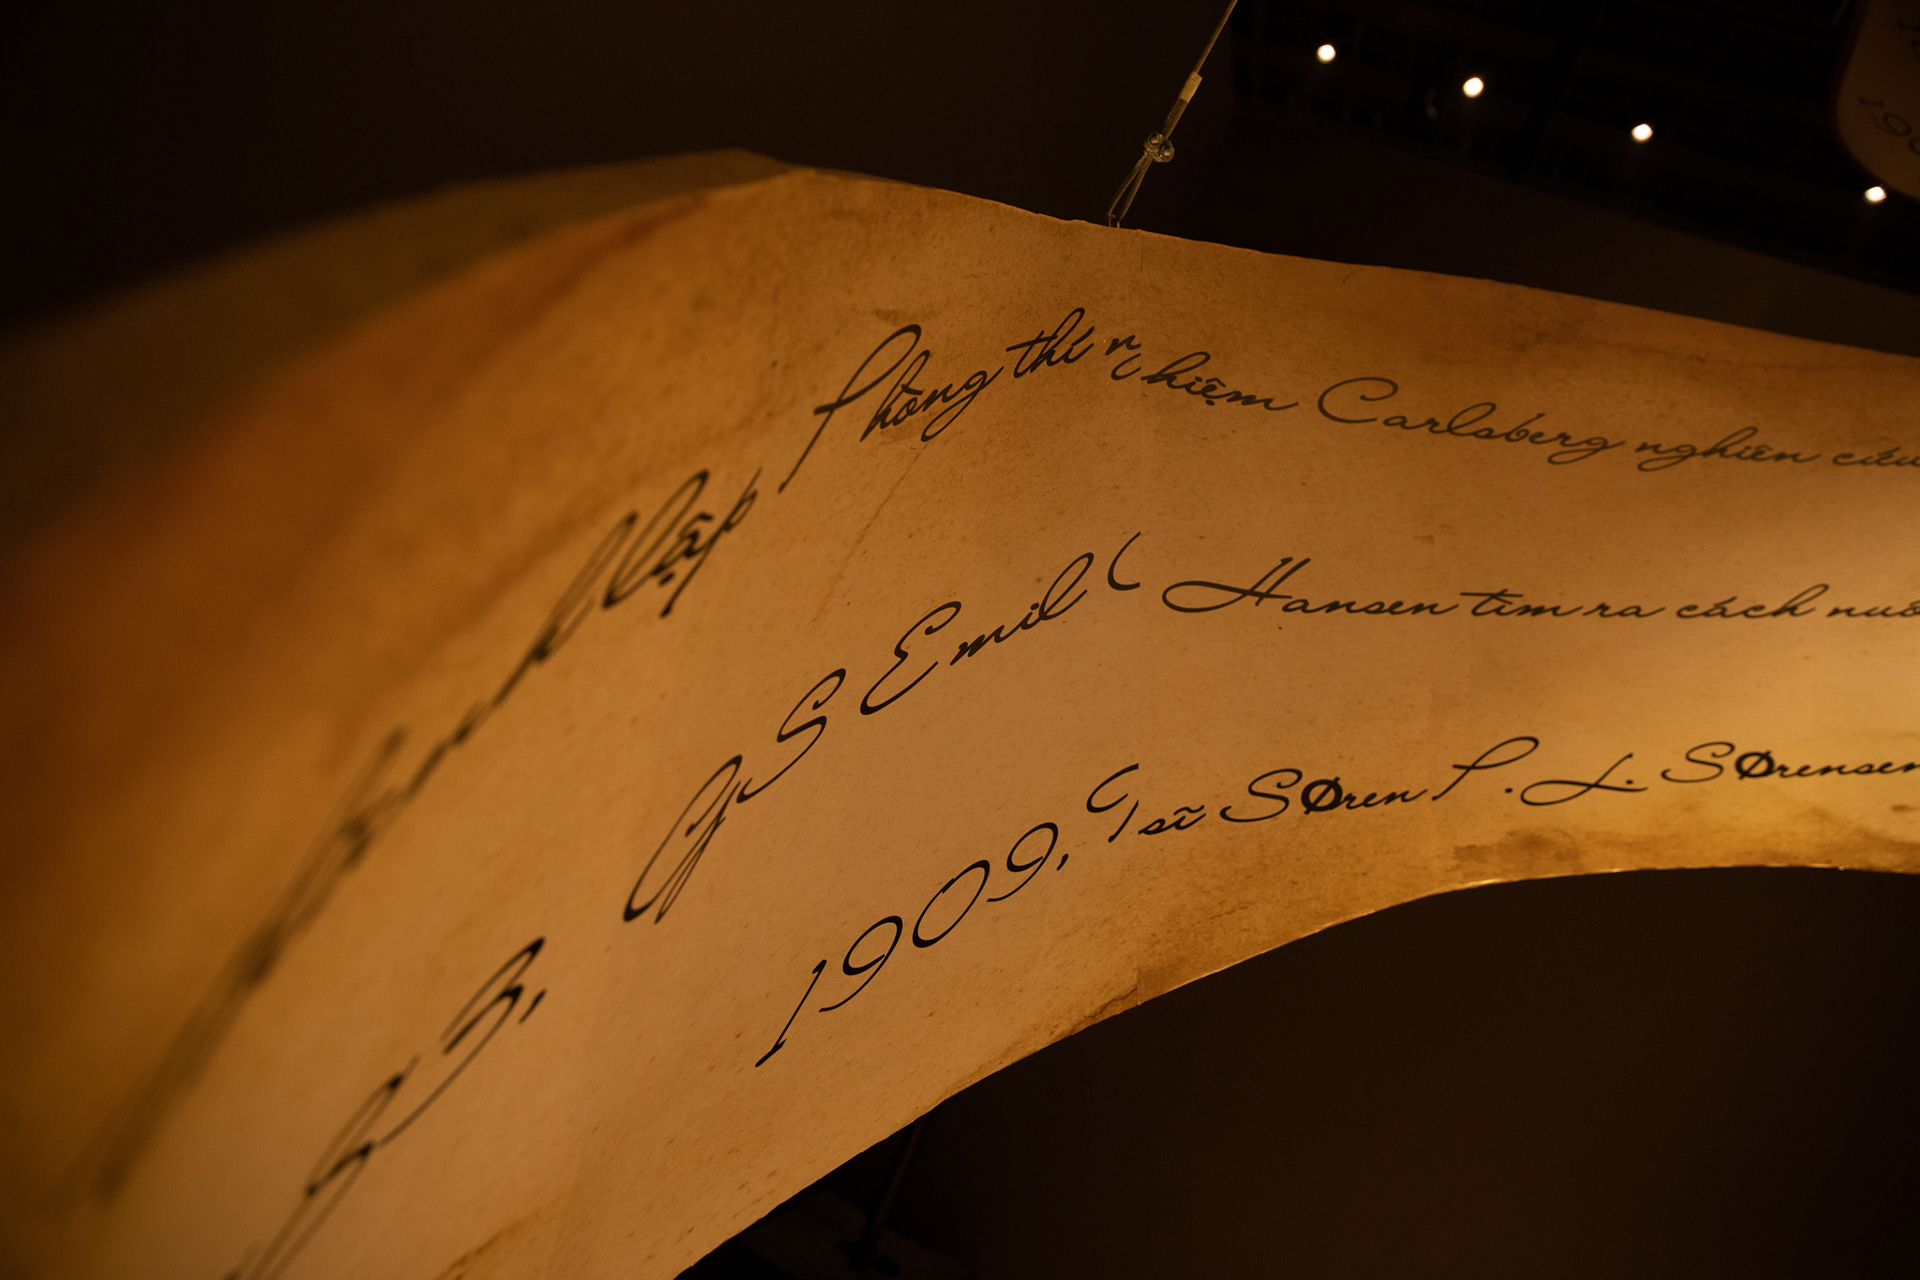 lập Phòng thí nghiệm Carlsberg nghiên cứu
83, GS Emil C Hansen tìm ra cách nuô
1909, Tsĩ Søren P. L. Sørensen